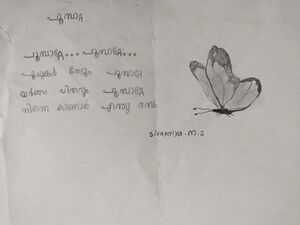 പൂമ്പാറ്റ
പൂമ്പാറ്റേ... പൂമ്പാറ്റേ...
പൂവുകൾ തേടും പൂമ്പാറ്റേ
വർണം വിതറും പൂമ്പാറ്റേ
നിന്നെ കാണാൻ എന്തു രസം
sivapriya.m.s